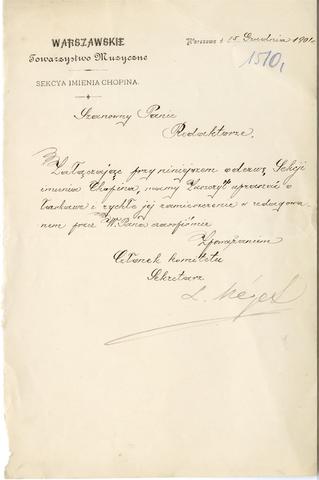 WARSZAWSKIE
Towarzystwo Muzyczne
SEKCYA IMIENIA CHOPINA.
Warszawa d. 15 Grudnia 1901
1510,
Szanowny Panie
Redaktorze.
Załączając przy niniejszem odezwę Sekcji
imienia Chopina, mamy zaszczyt upraszać o
łaskawe i rychłe jej zamieszczenie w redagowa-
nem przez W. Pana czasopiśmie
Z poważaniem
Członek komitetu
Sekretarz